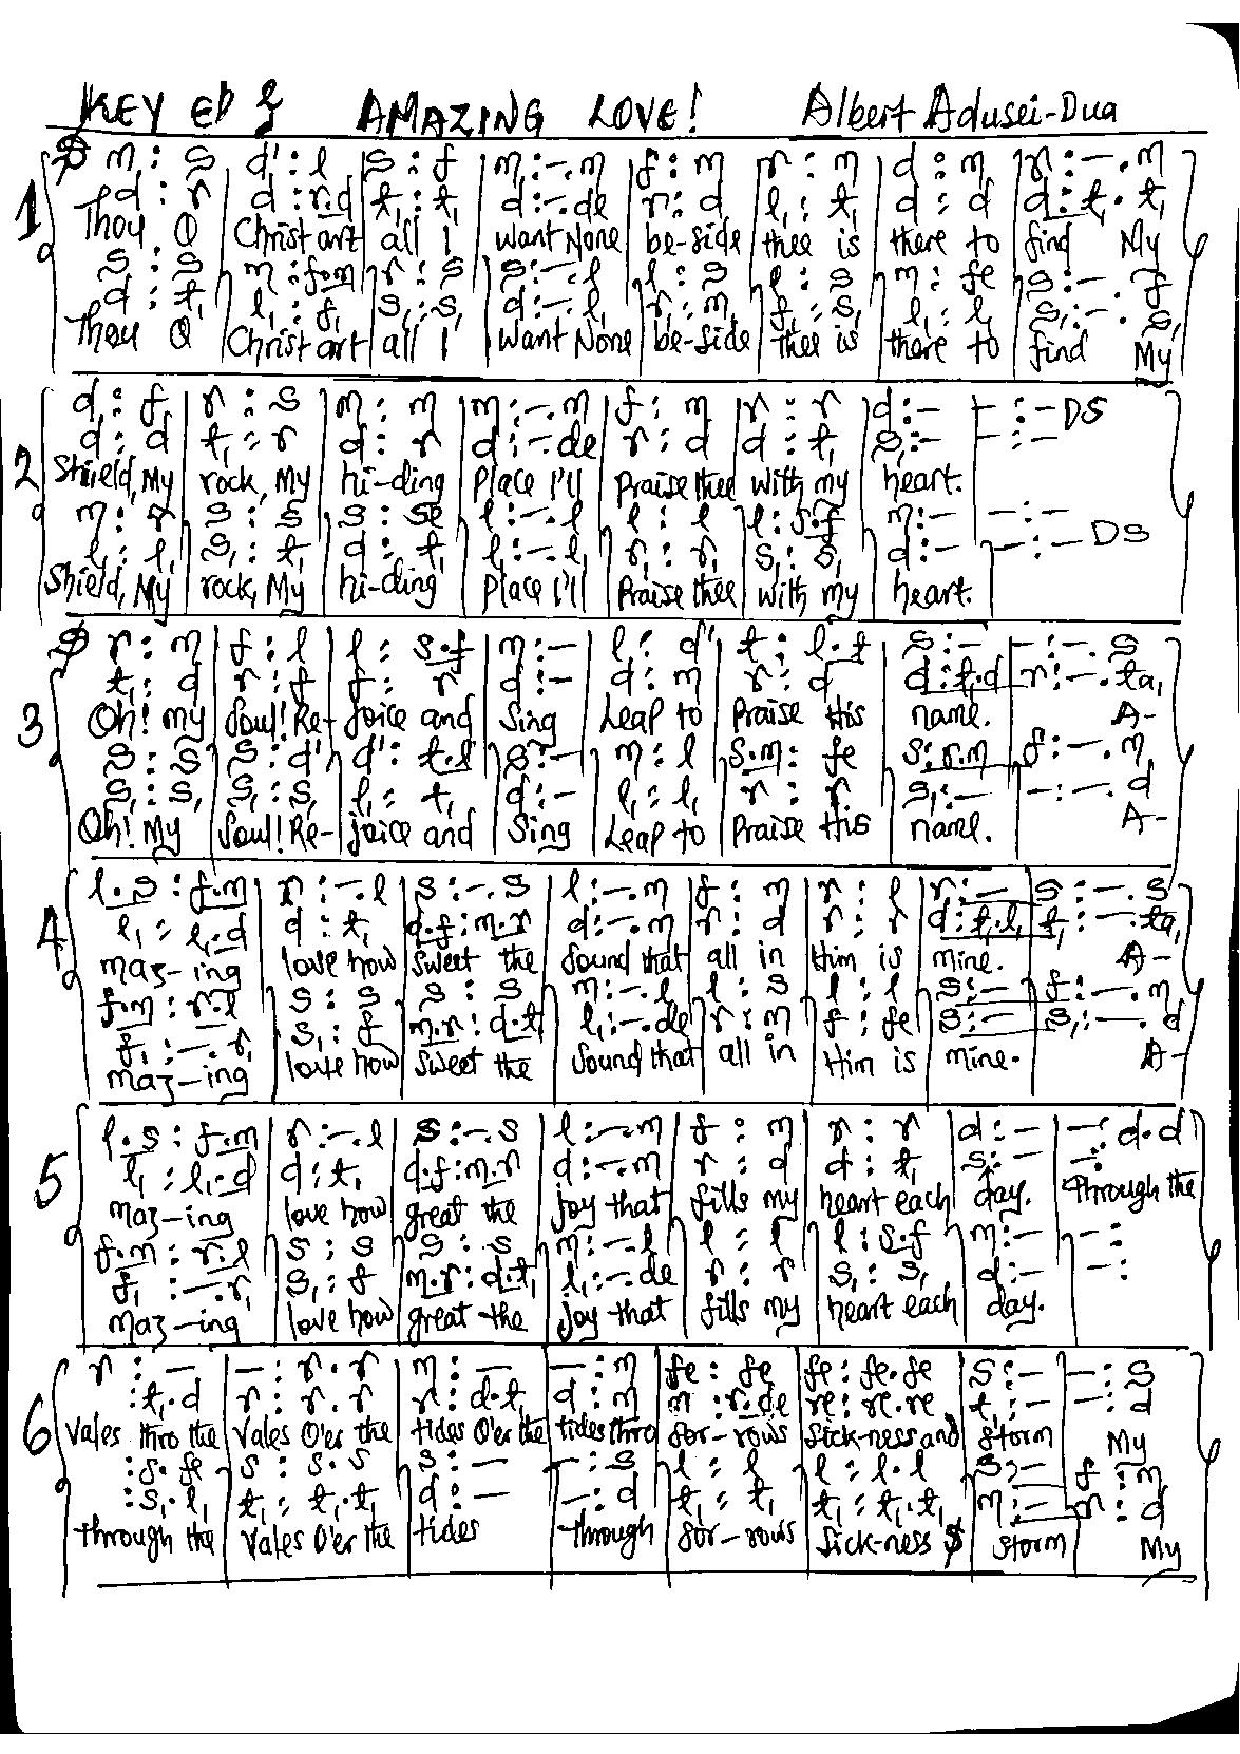 KEY Eb & AMAZING LOVE! Albert Adusei-Dua
1
m : s | d' : l | s : f | m : - . m | f : m | r : m | d : m | r : - . m
d : r | d : r.d | t, : t, | d : - . de | r : d | l, : t, | d : d | d : t, . t,
Thou O Christ art all I want None be-side thee is there to find My
s : s | m : f.m | r : s | s : - . l | l : s | l : s | m : fe | s : - . f
d : t, | l, : f, | s, : s, | d : - . l, | r, : m, | f, : s, | l, : l, | s, : - . s,
Thou O Christ art all I Want None be-side thee is there to find My
2
d : f | r : s | m : m | m : - . m | f : m | r : r | d : - | - : - DS
d : d | t, : r | d : r | d : - . de | r : d | d : t, | s, : - | - : -
Shield, My rock, My hi-ding Place I'll Praise thee with my heart.
m : r | s : s | s : se | l : - . l | l : l | l : s.f | m : - | - : -
l, : l, | s, : t, | d : t, | l, : - . l, | r, : r, | s, : s, | d : - | - : - DS
Shield, My rock, My hi-ding Place I'll Praise thee with my heart.
3
r : m | f : l | l : s.f | m : - | l : d' | t : l.t | s : - | - : - . s
t, : d | r : f | f : r | d : - | d : m | r : d | d : t,.d | r : - . ta,
Oh! my Soul! Re-joice and Sing Leap to Praise His name. A-
s : s | s : d' | d' : t.l | s : - | m : l | s.m : fe | s : r.m | f : - . m
s, : s, | s, : s, | l, : t, | d : - | l, : l, | r : r | s, : - | - : - . d
Oh! My Soul! Re-joice and Sing Leap to Praise His name. A-
4
l.s : f.m | r : - . l | s : - . s | l : - . m | f : m | r : l | r : - | s : - . s
l, : l,.d | d : t, | d.f : m.r | d : - . m | r : d | r : r | d : t,.l, | t, : - . ta,
maz-ing love how sweet the Sound that all in Him is mine. A-
f.m : r.l | s : s | s : s | m : - . l | l : s | l : l | s : - | f : - . m
f, : - . r, | s, : f | m.r : d.t, | l, : - . de | r : m | f : fe | s : - | s, : - . d
maz-ing love how Sweet the Sound that all in Him is mine. A-
5
l.s : f.m | r : - . l | s : - . s | l : - . m | f : m | r : r | d : - | - : d.d
l, : l,.d | d : t, | d.f : m.r | d : - . m | r : d | d : t, | s, : - | - :
maz-ing love how great the joy that fills my heart each day. Through the
f.m : r.l | s : s | s : s | m : - . l | l : l | l : s.f | m : - | - :
f, : - . r, | s, : f | m.r : d.t, | l, : - . de | r : r | s, : s, | d : - | - :
maz-ing love how great the joy that fills my heart each day.
6
r : - | - : r.r | m : - | - : m | fe : fe | fe : fe.fe | s : - | - : s
: t,.d | r : r.r | r : d.t, | d : m | m : r.de | re : re.re | t, : - | - : d
Vales thro the Vales O'er the tides O'er the tides thro Sor-rows Sick-ness and Storm My
: s.fe | s : s.s | s : - | - : s | l : l | l : l.l | s : - | f : m
: s,.l, | t, : t,.t, | d : - | - : d | t, : t, | t, : t,.t, | m : - | r : d
through the Vales O'er the tides through Sor-rows Sick-ness $ Storm My